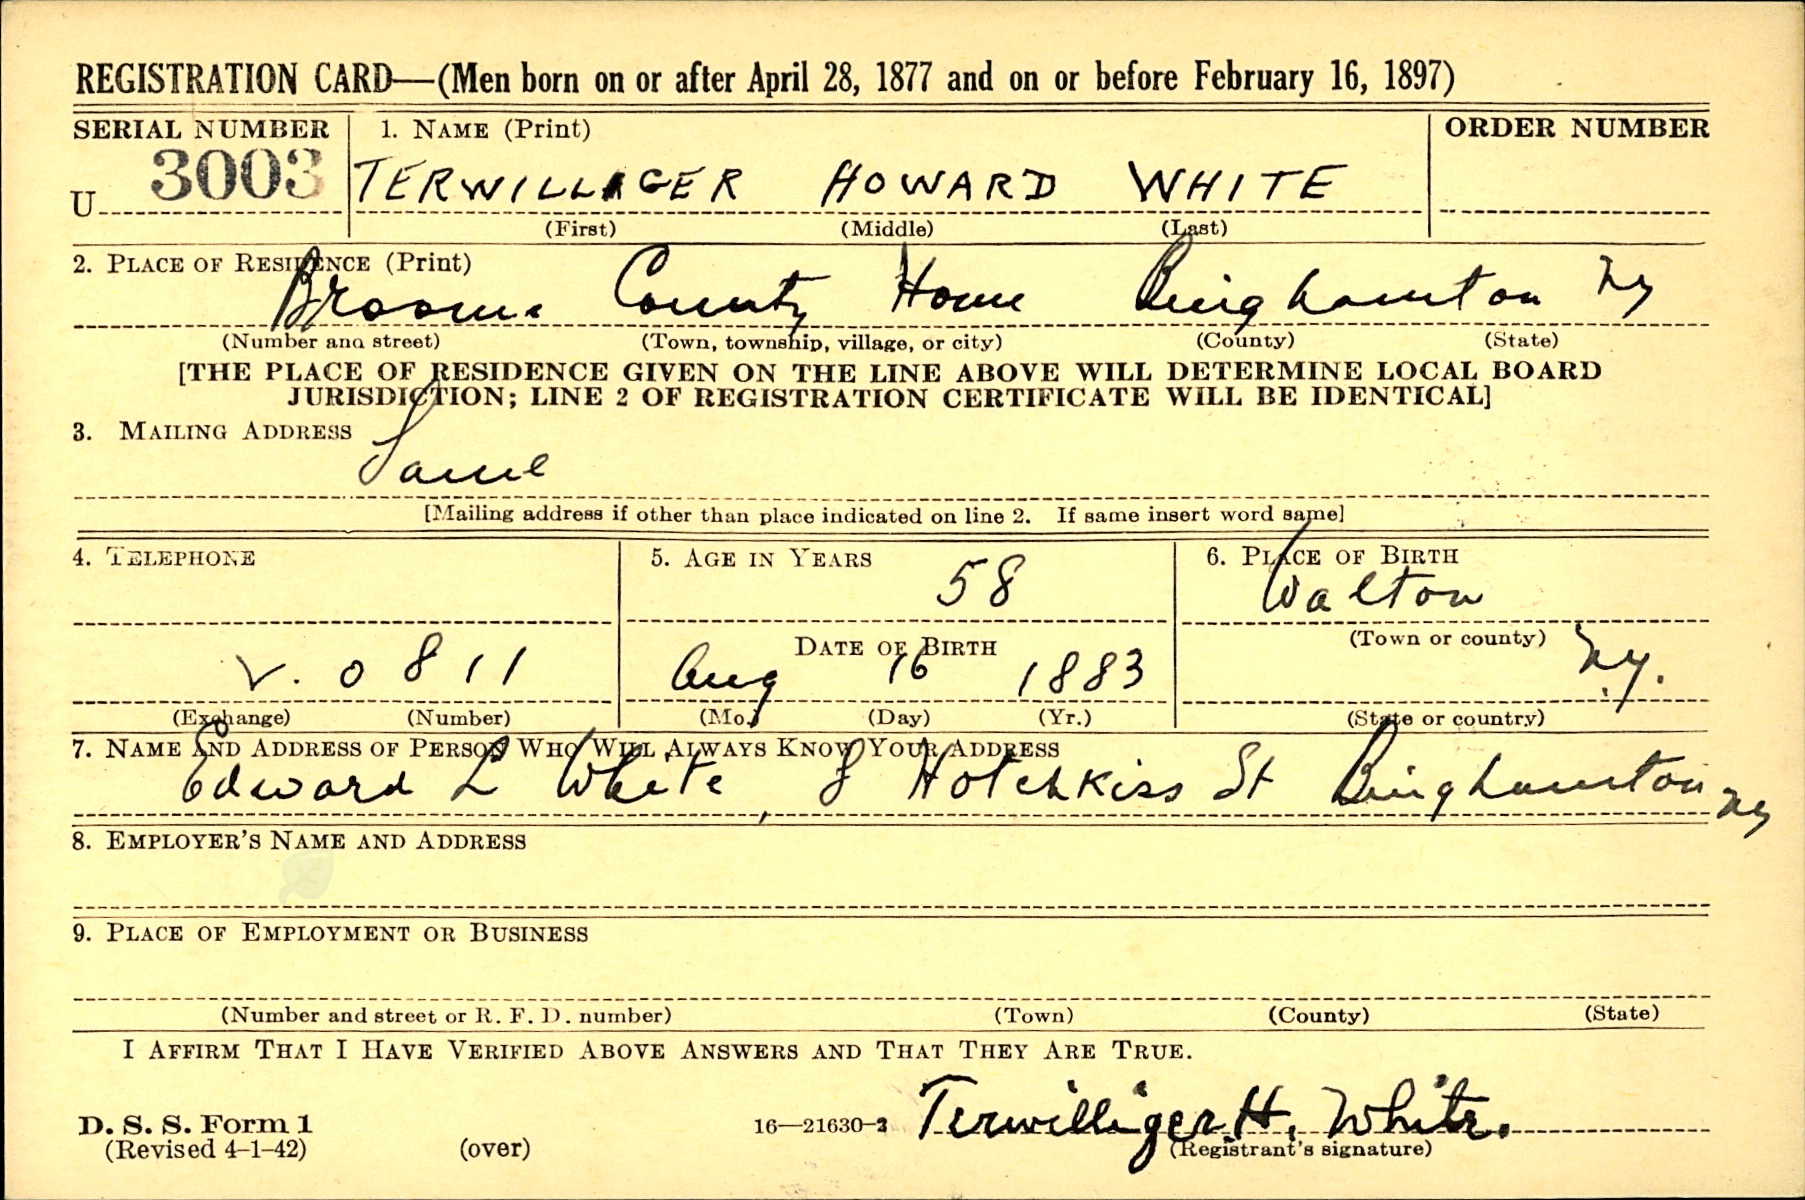 REGISTRATION CARD—(Men born on or after April 28, 1877 and on or before February 16, 1897)
SERIAL NUMBER 1. NAME (Print) ORDER NUMBER
U 3003 TERWILLIGER HOWARD WHITE
(First) (Middle) (Last)
2. PLACE OF RESIDENCE (Print)
Broome County Home Binghamton Ny
(Number and street) (Town, township, village, or city) (County) (State)
[THE PLACE OF RESIDENCE GIVEN ON THE LINE ABOVE WILL DETERMINE LOCAL BOARD
JURISDICTION; LINE 2 OF REGISTRATION CERTIFICATE WILL BE IDENTICAL]
3. MAILING ADDRESS
Same
[Mailing address if other than place indicated on line 2. If same insert word same]
4. TELEPHONE 5. AGE IN YEARS 6. PLACE OF BIRTH
58 Walton
DATE OF BIRTH (Town or county)
0811 Aug 16 1883 Ny.
(Exchange) (Number) (Mo.) (Day) (Yr.) (State or country)
7. NAME AND ADDRESS OF PERSON WHO WILL ALWAYS KNOW YOUR ADDRESS
Edward L White, 8 Hotchkiss St Binghamton Ny
8. EMPLOYER'S NAME AND ADDRESS
9. PLACE OF EMPLOYMENT OR BUSINESS
(Number and street or R. F. D. number) (Town) (County) (State)
I AFFIRM THAT I HAVE VERIFIED ABOVE ANSWERS AND THAT THEY ARE TRUE.
D. S. S. Form 1 16—21630-2 Terwilliger H. White.
(Revised 4-1-42) (over) (Registrant's signature)